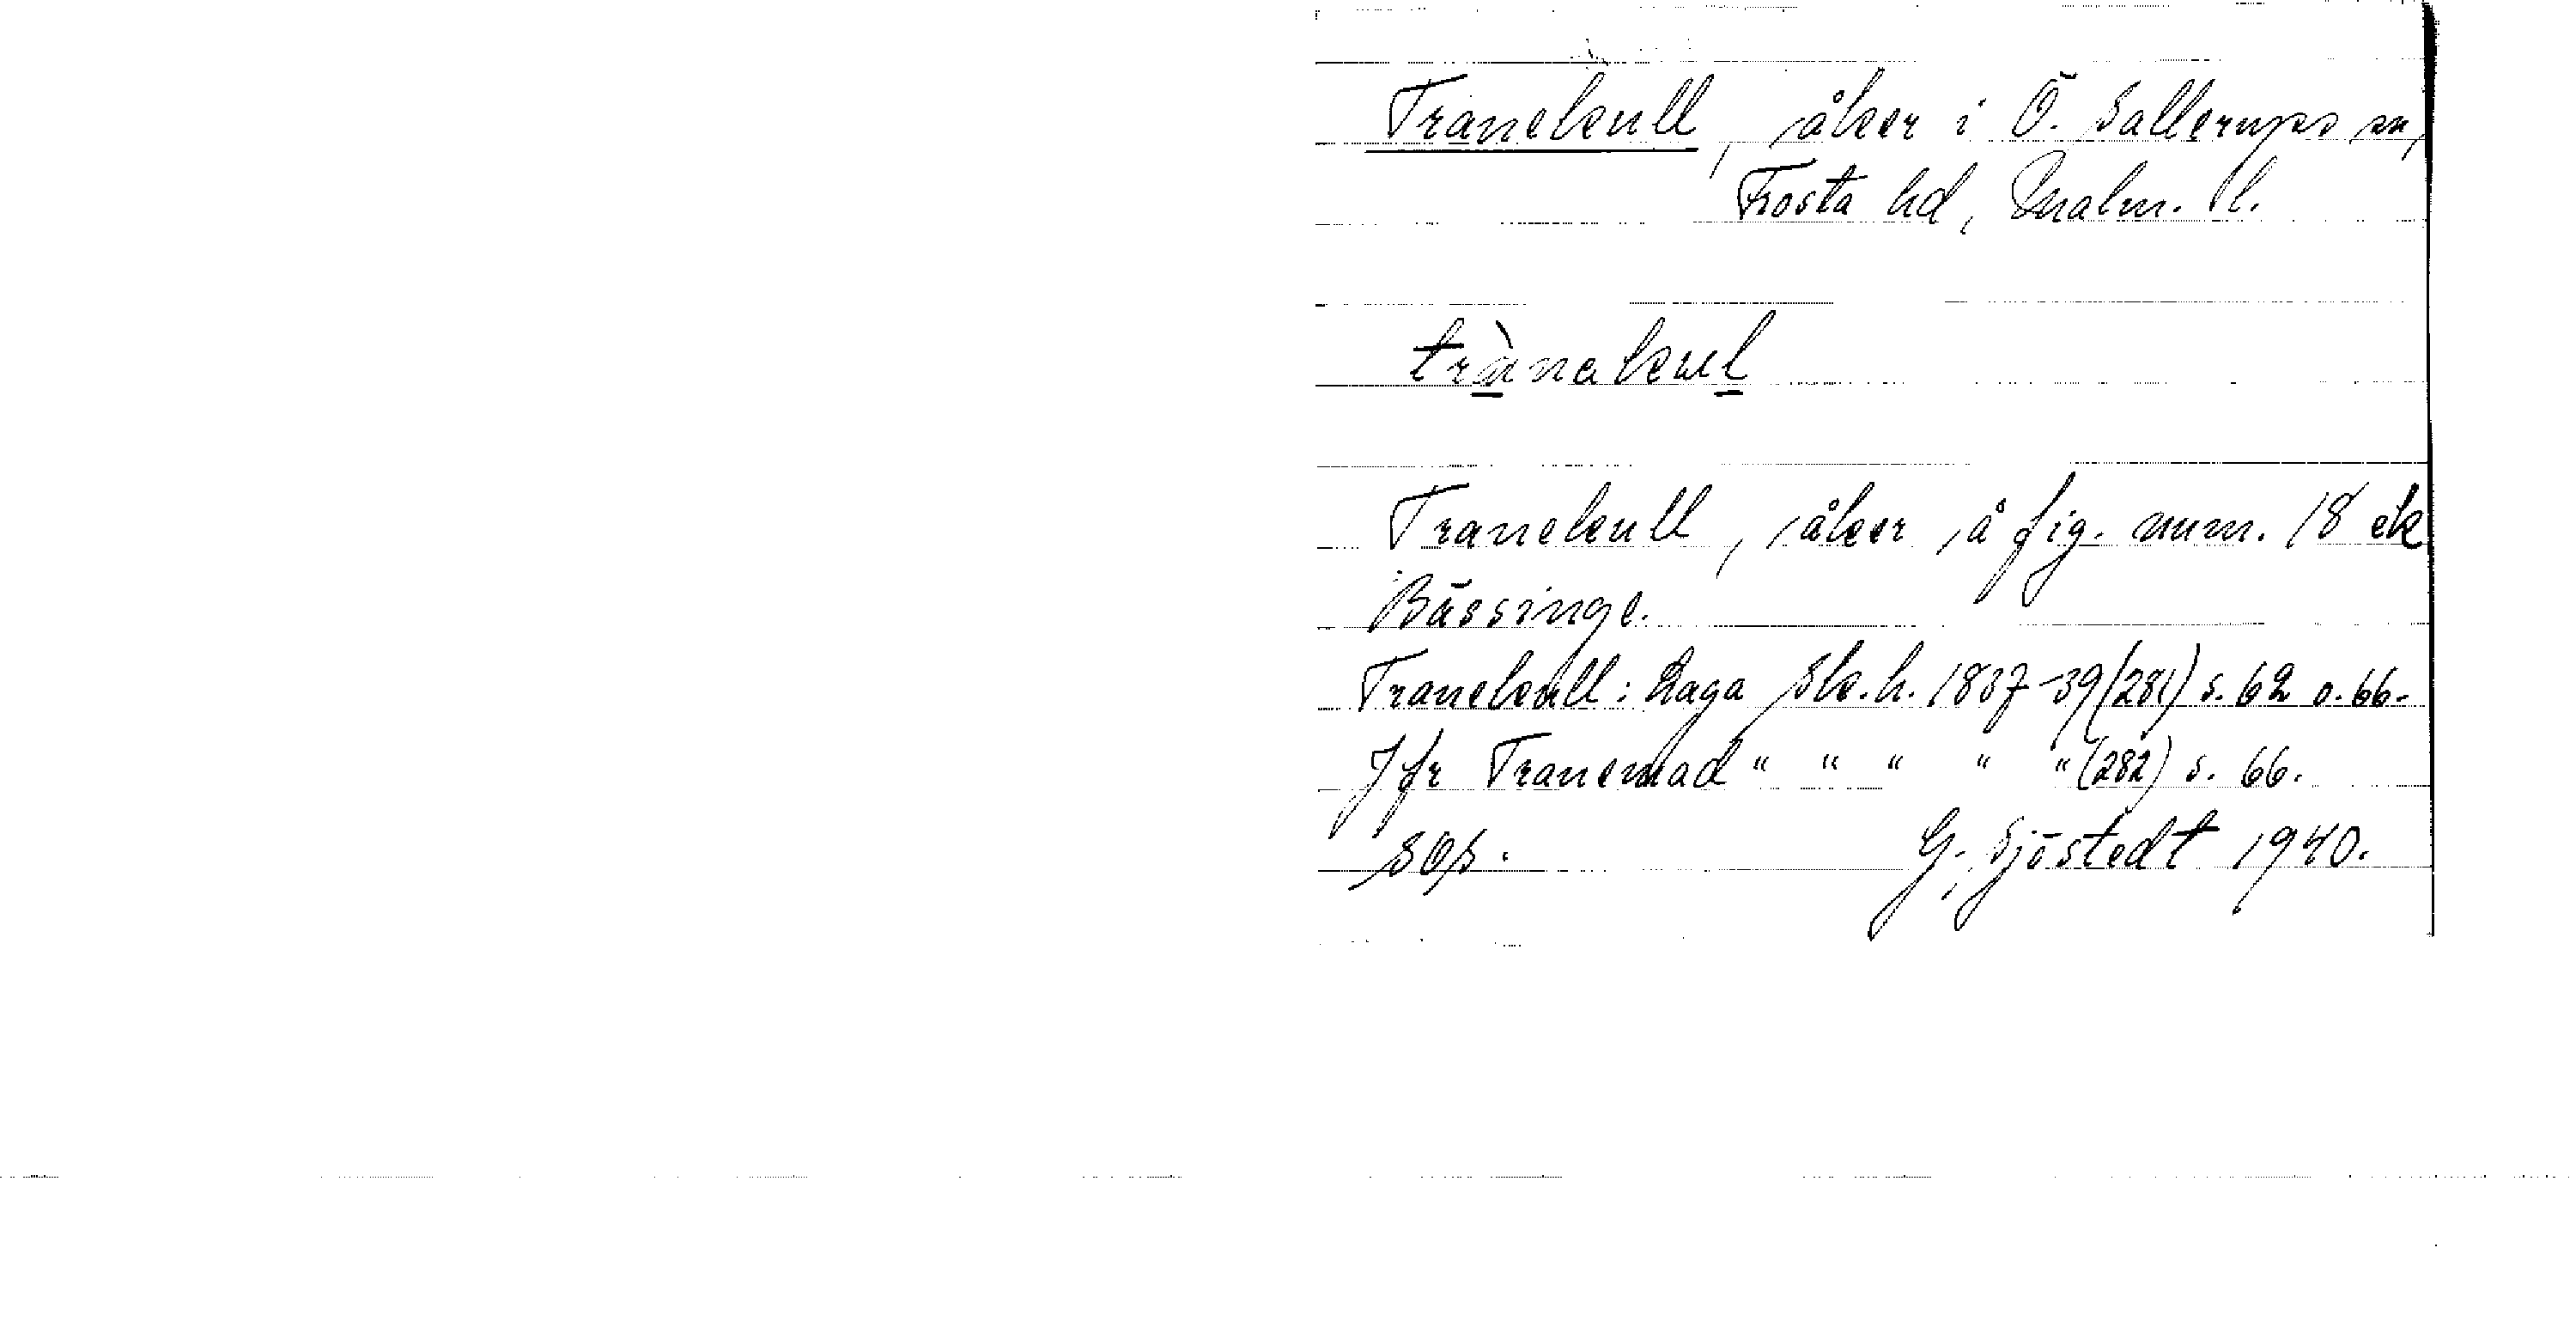 Tranekull, åker i Ö. Sallerups sn,
Frosta hd, Malm. l.
trànakul
Tranekull, åker å fig. num. 18 ek
Bässinge.
Tranekull: Laga Sk. h. 1837-39 (281) s. 62 o. 66.
Jfr Tranemad " " " " " (282) s. 66.
sOs. G. Sjöstedt 1940.